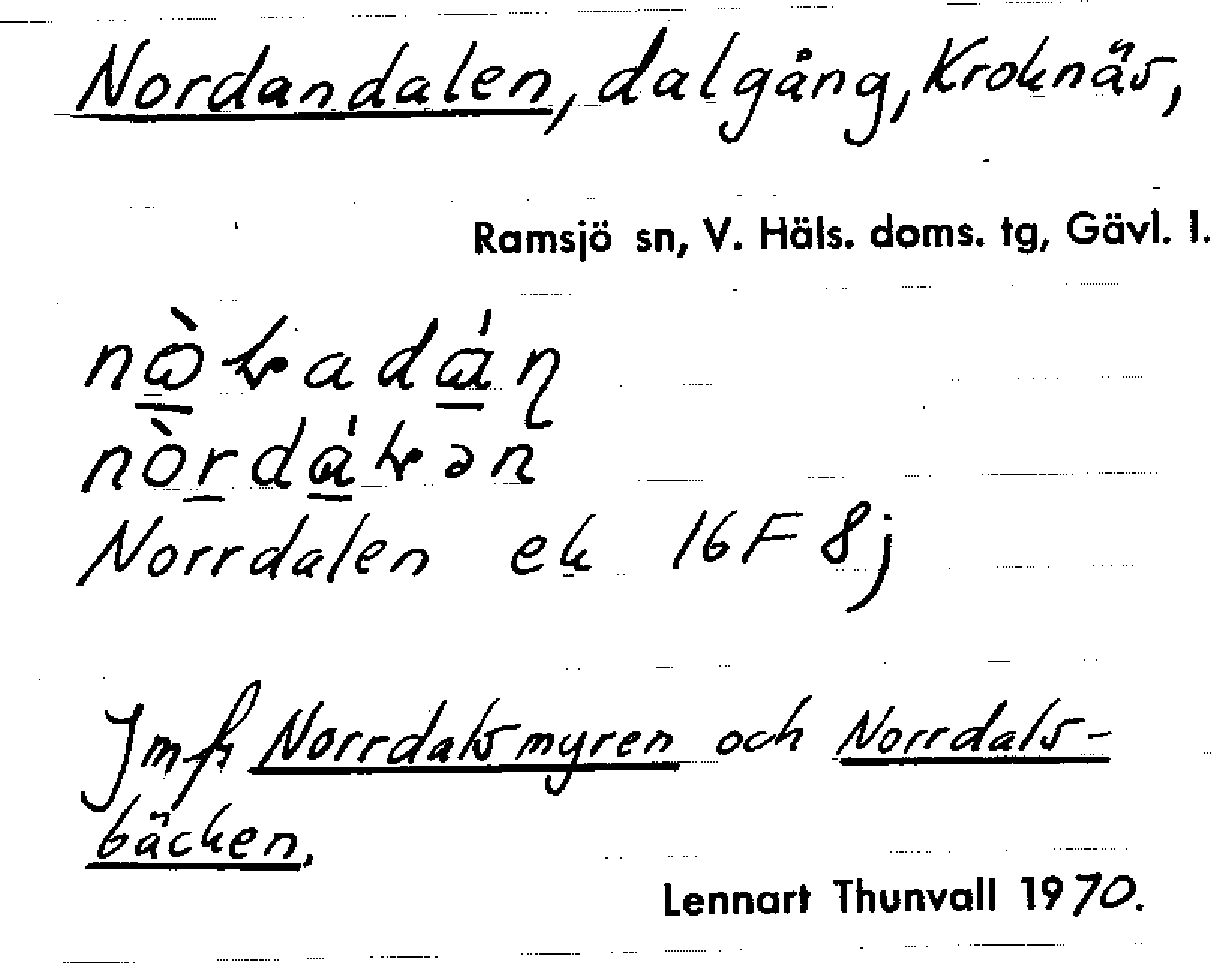 Nordandalen, dalgång, Kroknäs,
Ramsjö sn, V. Häls. doms. tg, Gävl. l.
Norrdalen ek 16F 8j
Jmfr Norrdalsmyren och Norrdals-
bäcken.
Lennart Thunvall 1970.